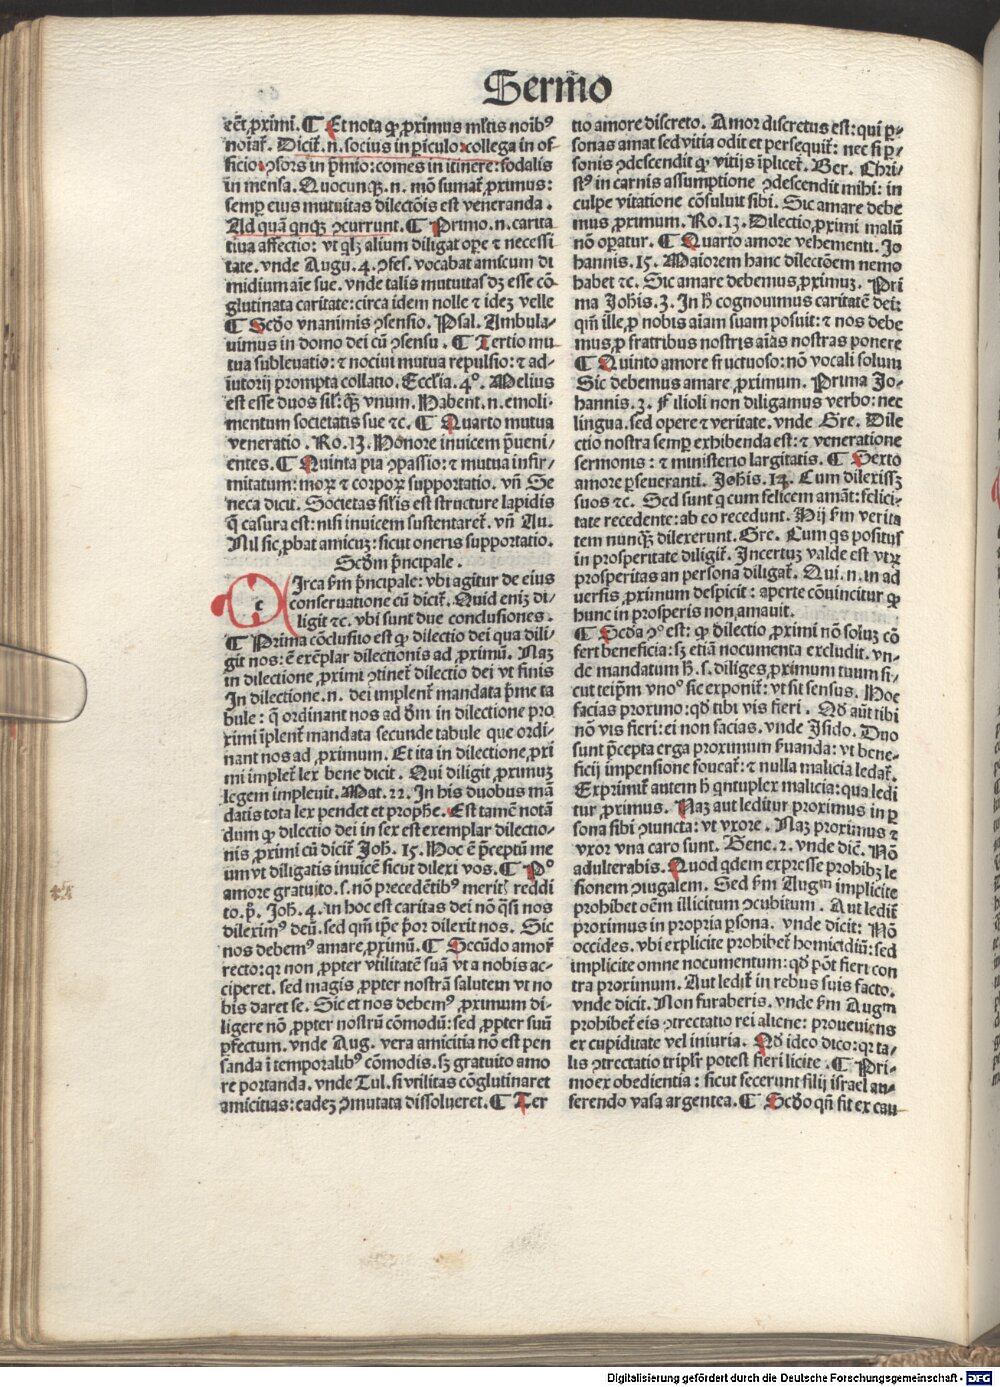 Serm̄o
eēt ꝓximi. ¶ Et nota ꝙ ꝓximus ml̄tis noībꝰ
noīat̄. Dicit̄.n. socius in ꝑiculo: collega in of
ficio: ꝯsors in p̄mio: comes in itinere: sodalis
in mensa. Quocunqꝫ.n. mō sumat̄ ꝓximus:
semꝑ eius mutuitas dilectōis est veneranda.
Ad quā qnqꝫ ꝯcurrunt. ¶ Primo.n. carita
tiua affectio: vt ql̓ꝫ alium diligat oꝑe ⁊ necessi
tate. vnde Augu. 4. ꝯfes. vocabat amicum di
midium aīe sue. vnde talis mutuitas dꝫ esse cō
glutinata caritate: circa idem nolle ⁊ ideꝫ velle
¶ Scd̓o vnanimis ꝯsensio. Psal. Ambula-
uimus in domo dei cū ꝯsensu. ¶ Tertio mu
tua subleuatio: ⁊ nociui mutua repulsio: ⁊ ad-
iutorij prompta collatio. Eccl̓ia. 4°. Melius
est esse duos sil̓: qꝫ vnum. Habent.n. emoli-
mentum societatis sue ⁊c. ¶ Quarto mutua
veneratio. Ro. 13. Honore inuicem p̄ueni-
entes. ¶ Quinta pia ꝯpassio: ⁊ mutua infir-
mitatum: moꝝ ⁊ corpoꝝ supportatio. vn̄ Se
neca dicit. Societas sil̓is est structure lapidis
q̄ casura est: nisi inuicem sustentaret̄. vn̄ Au.
Nil sic ꝓbat amicuꝫ: sicut oneris supportatio.
Scd̓m p̄ncipale.
c Irca fm p̄ncipale: vbi agitur de eius
conseruatione cū dicit̄. Quid eniꝫ di-
ligit ⁊c. vbi sunt due conclusiones.
¶ Prima cōclusio est ꝙ dilectio dei qua dili-
git nos: ē exēplar dilectionis ad ꝓximū. Naꝫ
in dilectione ꝓximi ꝯtinet̄ dilectio dei vt finis
In dilectione.n. dei implent̄ mandata p̄me ta
bule: q̄ ordinant nos ad d̓m in dilectione pro
ximi īplent̄ mandata secunde tabule que ordi-
nant nos ad ꝓximum. Et ita in dilectione ꝓxi
mi implet̄ lex bene dicit. Qui diligit ꝓximuꝫ
legem impleuit. Mat. 22. In his duobus mā
datis tota lex pendet et prophe. Est tamē notā
dum ꝙ dilectio dei in sex est exemplar dilectio-
nis ꝓximi cū dicit̄ Joh̄. 15. Hoc ē p̄ceptū me
um vt diligatis inuicē sicut dilexi vos. ¶ Pº
amore gratuito.s. nō precedētibꝰ merit̓ reddi
to. p̄. Joh̄. 4. in hoc est caritas dei nō q̄si nos
dilexim̓ deū. sed qm̄ ip̄e p̓or dilexit nos. Sic
nos debemꝰ amare ꝓximū. ¶ Secūdo amor̄
recto: qr non ꝓpter vtilitatē suā vt a nobis ac-
ciperet. sed magis ꝓpter nostrā salutem vt no
bis daret se. Sic et nos debemꝰ ꝓximum di-
ligere nō ꝓpter nostrū cōmodū: sed ꝓpter suū
ꝓfectum. vnde Aug. vera amicitia nō est pen
sanda ī temporalibꝰ cōmodis. sꝫ gratuito amo
re portanda. vnde Tul. si vtilitas cōglutinaret
amicitias: eadeꝫ ꝯmutata dissolueret. ¶ Ter
tio amore discreto. Amor discretus est: qui ꝑ-
sonas amat sed vitia odit et persequit̄: nec si ꝑ-
sonis ꝯdescendit ꝙ vitijs īplicet̄. Ber. Chri-
stꝰ in carnis assumptione ꝯdescendit mihi: in
culpe vitatione cōsuluit sibi. Sic amare debe
mus ꝓximum. Ro. 13. Dilectio ꝓximi malū
nō oꝑatur. ¶ Quarto amore vehementi. Jo
hannis. 15. Maiorem hanc dilectōem nemo
habet ⁊c. Sic amare debemus ꝓximuꝫ. Pri
ma Joh̄is. 3. In h̓ cognouimus caritatē dei:
qm̄ ille ꝓ nobis aīam suam posuit: ⁊ nos debe
mus ꝓ fratribus nostris aīas nostras ponere
¶ Quinto amore fructuoso: nō vocali solum
Sic debemus amare ꝓximum. Prima Jo-
hannis. 3. Filioli non diligamus verbo: nec
lingua. sed opere ⁊ veritate. vnde Gre. Dile
ctio nostra semꝑ exhibenda est: ⁊ veneratione
sermonis: ⁊ ministerio largitatis. ¶ Sexto
amore ꝑseueranti. Joh̄is. 14. Cum dilexissꝫ
suos ⁊c. Sed sunt q cum felicem amāt: felici-
tate recedente: ab eo recedunt. Hij fm verita
tem nunqꝫ dilexerunt. Gre. Cum qs positus
in prosperitate diligit̄. Incertuꝫ valde est vtꝝ
prosperitas an persona diligat̄. Qui.n. in ad
uersis ꝓximum despicit: aperte cōuincitur ꝙ
hunc in prosperis non amauit.
¶ Scd̓a ꝯº est: ꝙ dilectio ꝓximi nō soluꝫ cō
fert beneficia: sꝫ etiā nocumenta excludit. vn-
de mandatum h̓.s. diliges ꝓximum tuum si-
cut teip̄m vnoº sic exponit̄: vt sit sensus. Hoc
facias proximo: qd̓ tibi vis fieri. Qd̓ aūt tibi
nō vis fieri: ei non facias. vnde Isido. Duo
sunt p̄cepta erga proximum ẜuanda: vt bene-
ficij impensione foueat̄: ⁊ nulla malicia ledat̄.
Exprimit̄ autem h̓ qntuplex malicia: qua ledi
tur ꝓximus. Naꝫ aut leditur proximus in ꝑ
sona sibi ꝯiuncta: vt vxore. Naꝫ proximus ⁊
vxor vna caro sunt. Gene. 2. vnde dic̄. Nō
adulterabis. Quod qdem expresse prohibꝫ le
sionem ꝯiugalem. Sed fm Augᵐ implicite
prohibet oēm illicitum ꝯcubitum. Aut ledit̄
proximus in propria ꝑsona. vnde dicit: Nō
occides. vbi explicite prohibet̄ homicidiū: sed
implicite omne nocumentum: qd̓ pōt fieri con
tra proximum. Aut ledit̄ in rebus suis facto.
vnde dicit. Non furaberis. vnde fm Augᵐ
prohibet̄ eis ꝯtrectatio rei aliene: proueniens
ex cupiditate vel iniuria. Qd̓ ideo dico: qr ta-
lis ꝯtrectatio tripl̓r potest fieri licite. ¶ Pri-
mo ex obedientia: sicut fecerunt filij israel au-
ferendo vasa argentea. ¶ Scd̓o qn̄ fit ex cau
Digitalisierung gefördert durch die Deutsche Forschungsgemeinschaft - DFG